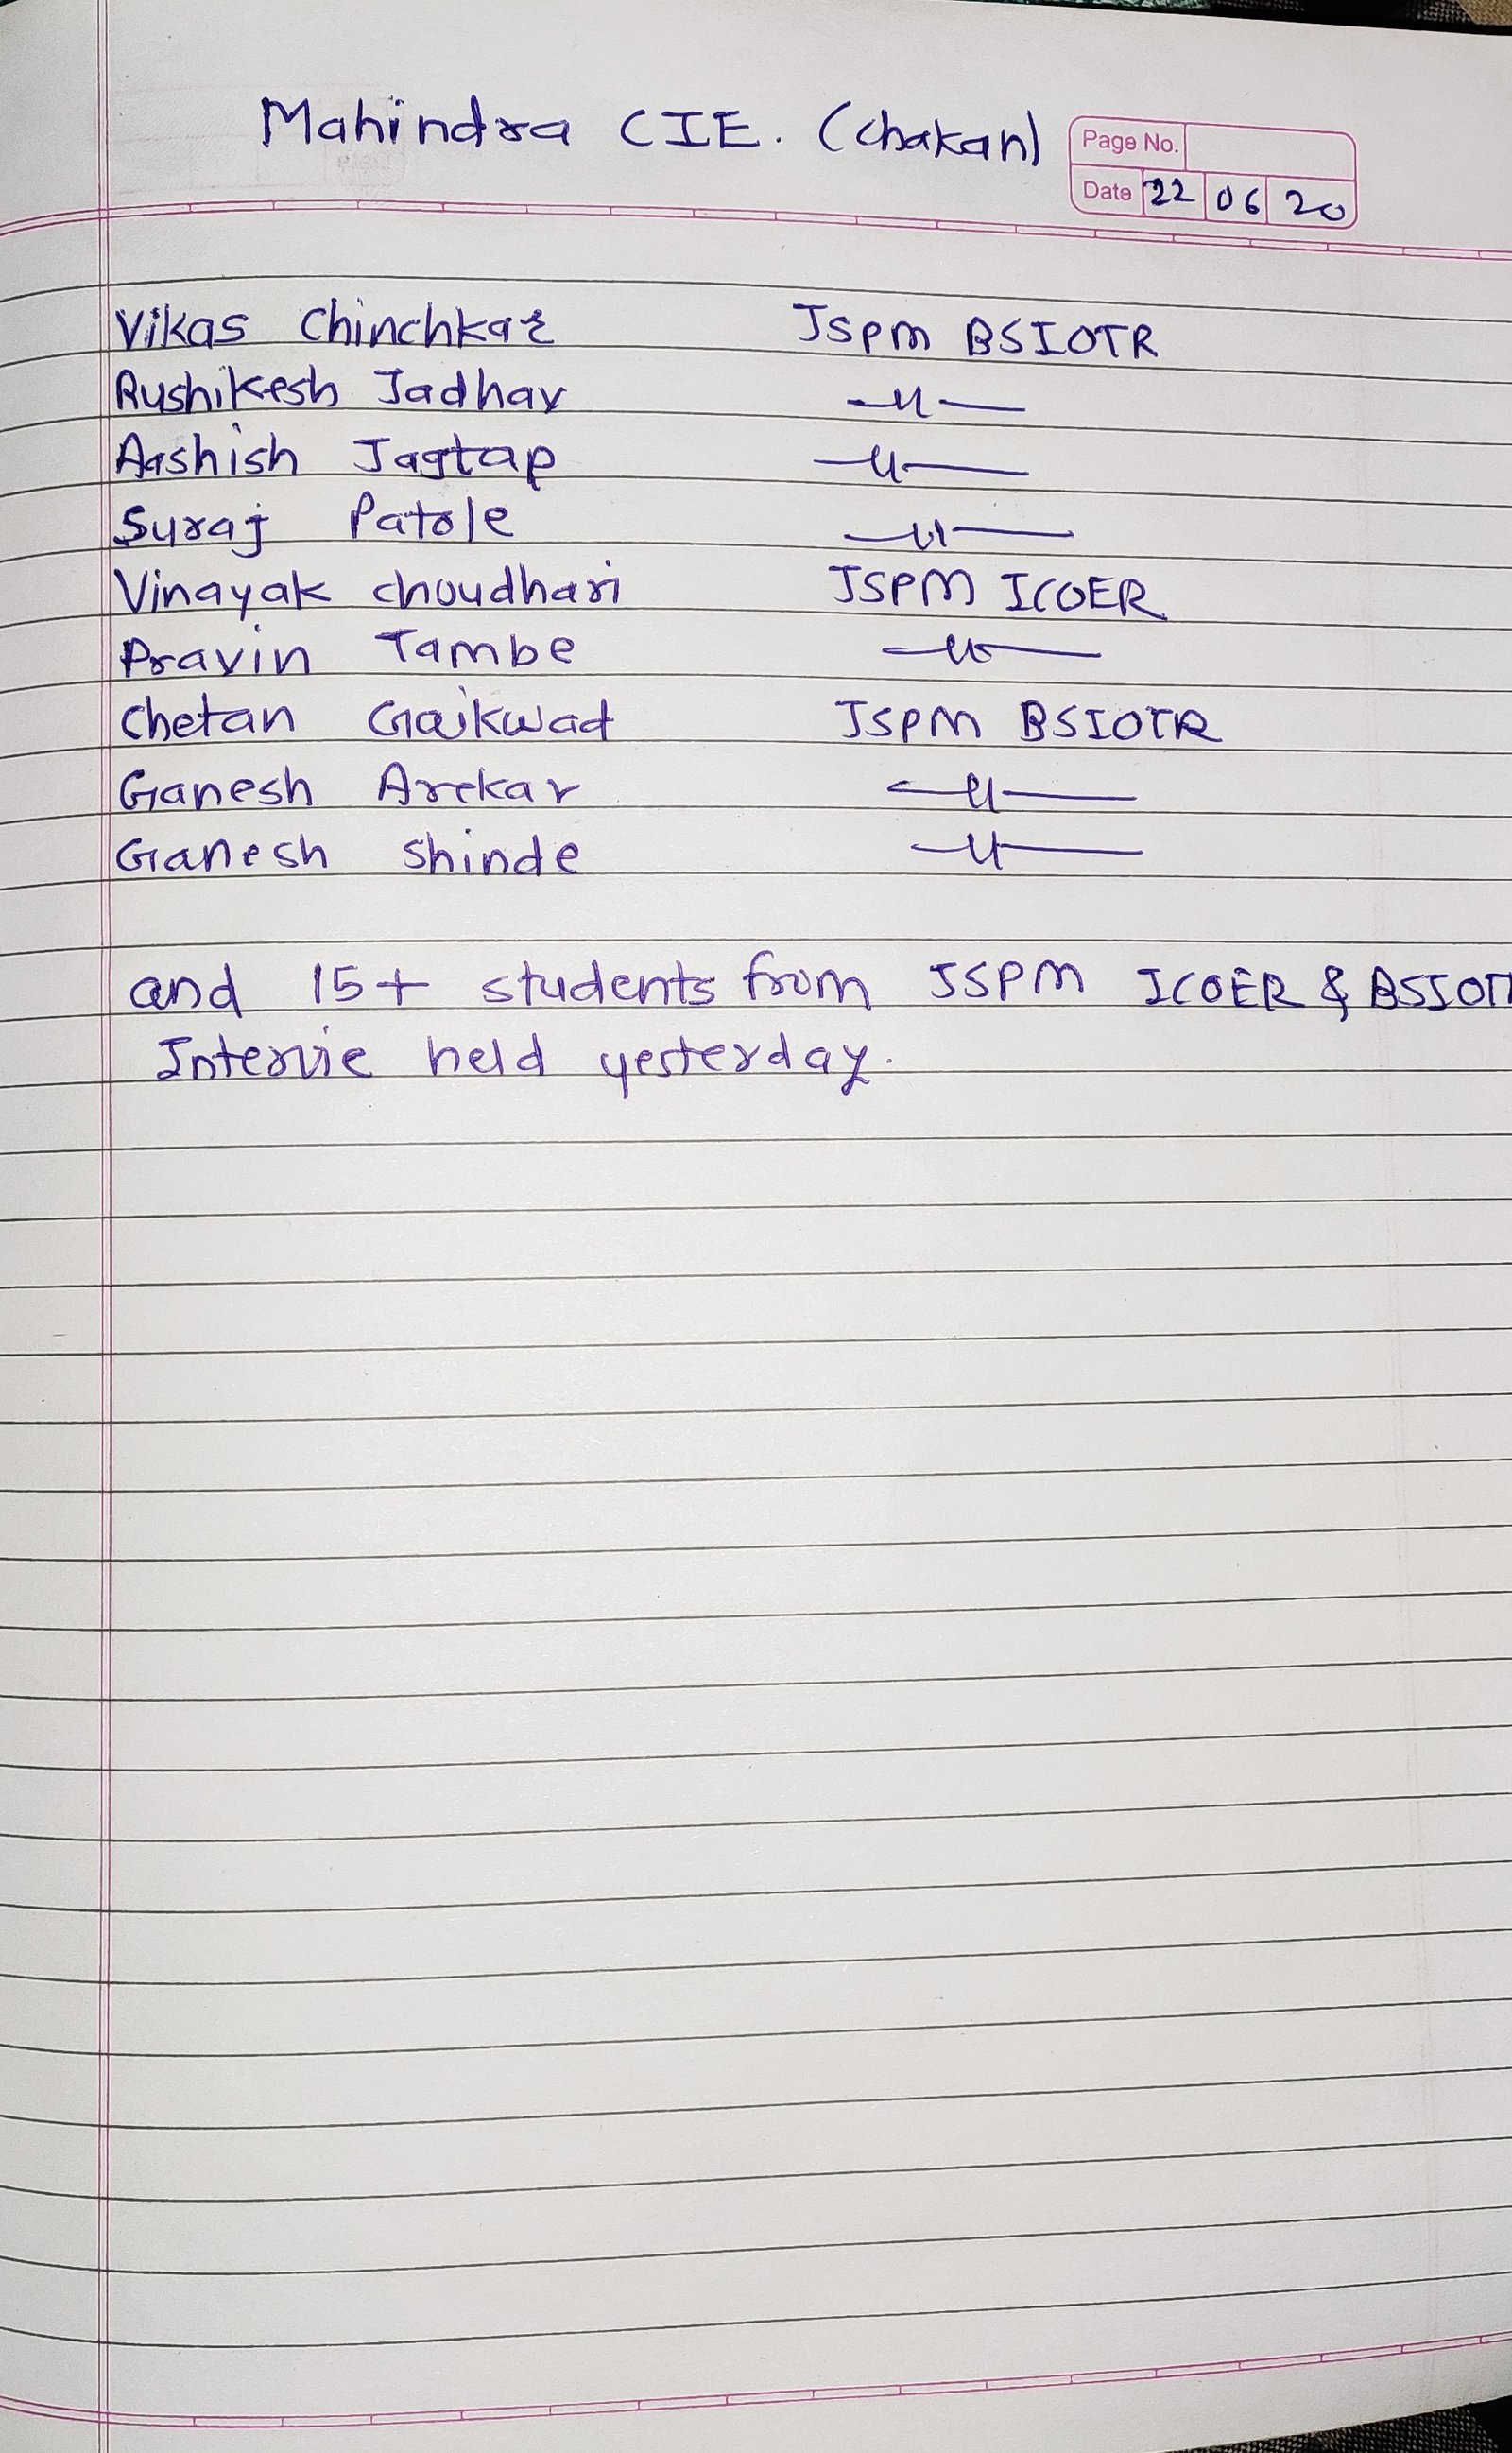 Mahindra CIE. (Chakan)
Page No.
Date 22 06 20
Vikas Chinchkar JSPM BSIOTR
Rushikesh Jadhav —〃—
Aashish Jagtap —〃—
Suraj Patole —〃—
Vinayak choudhari JSPM ICOER
Pravin Tambe —〃—
Chetan Gaikwad JSPM BSIOTR
Ganesh Arekar —〃—
Ganesh Shinde —〃—
and 15+ students from JSPM ICOER & BSIOT
Intervie held yesterday.